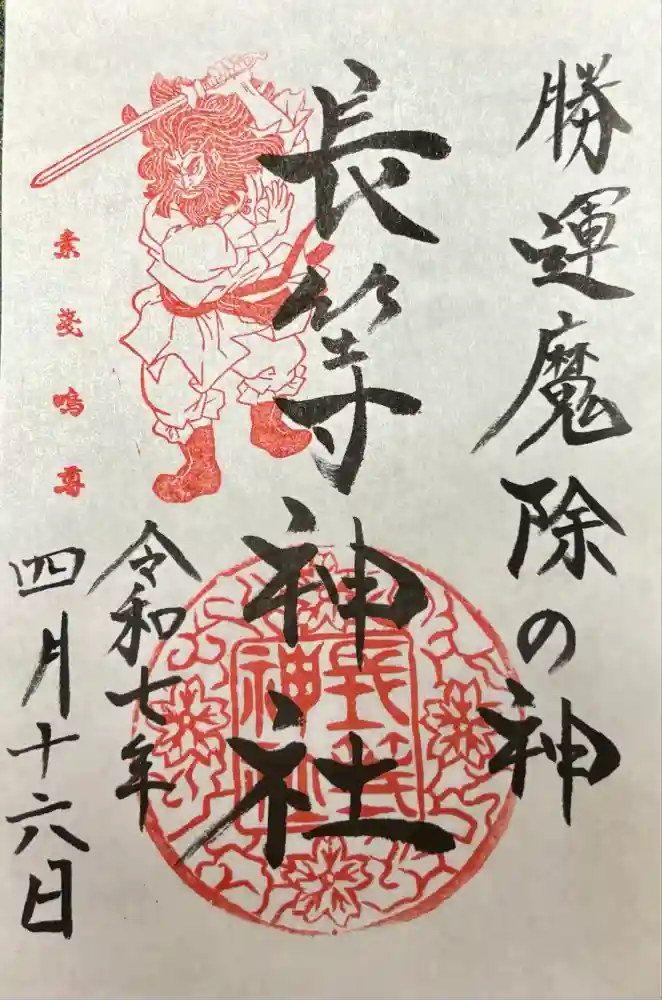 勝運魔除の神
長等神社
長等神社
素戔嗚尊
令和七年
四月十六日